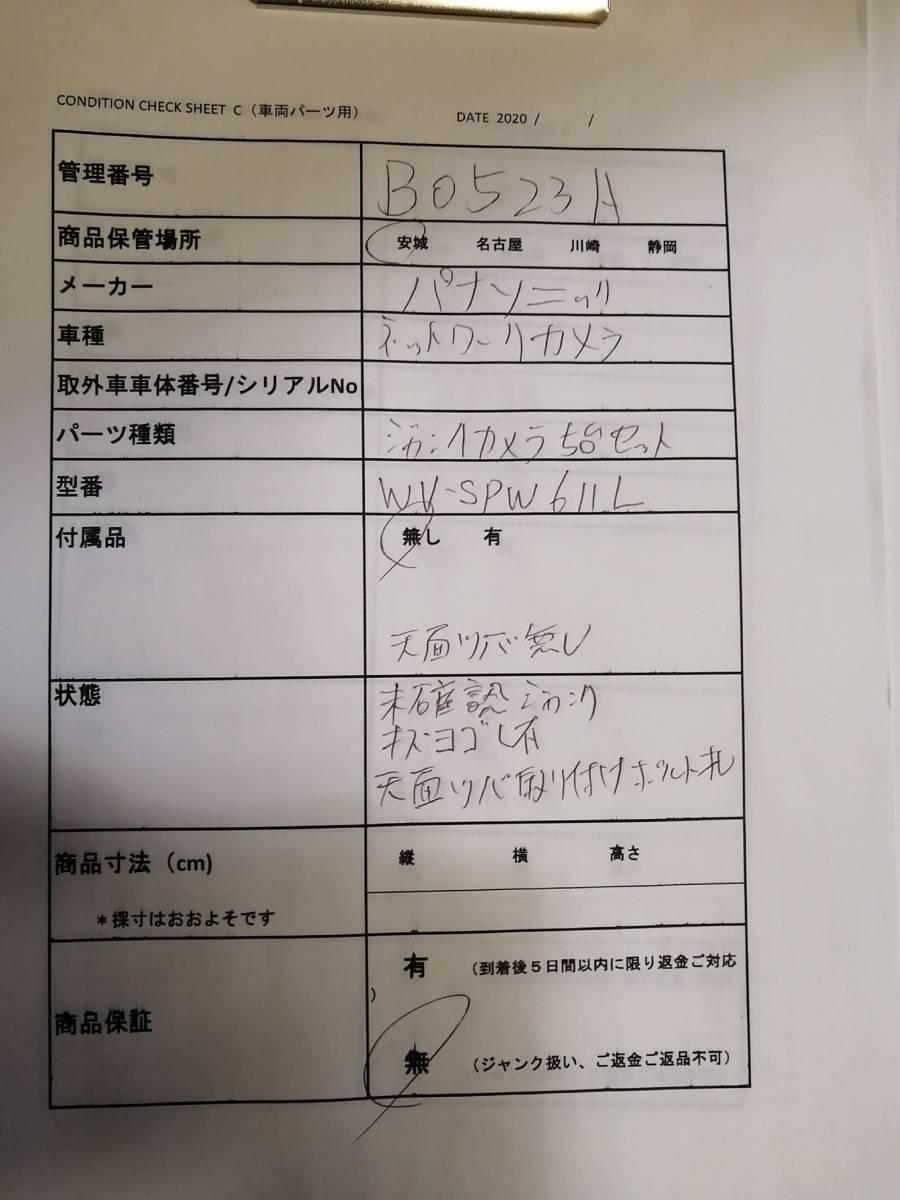 CONDITION CHECK SHEET C（車両パーツ用） DATE 2020 / /
管理番号 B0523A
商品保管場所 安城 名古屋 川崎 静岡
メーカー パナソニック
車種 ネットワークカメラ
取外車車体番号/シリアルNo
パーツ種類 ジャンクカメラ 5台セット
型番 WV-SPW611L
付属品 無し 有
天面ツバ無し
状態 未確認 ジャンク
キズヨゴレ有
天面ツバ取り付けボルト
商品寸法（cm） 縦 横 高さ
＊採寸はおおよそです
商品保証 有 （到着後５日間以内に限り返金ご対応
）
無 （ジャンク扱い、ご返金ご返品不可）